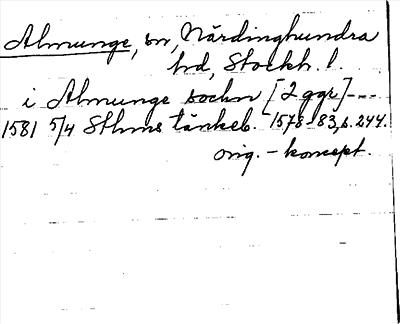 Almunge, sn, Närdinghundra
hd, Stockh. l.
i Almunge sochn [2 ggr] ---
1581 5/4 Sthms tänkeb. 1578-83, s. 244.
orig. - koncept.